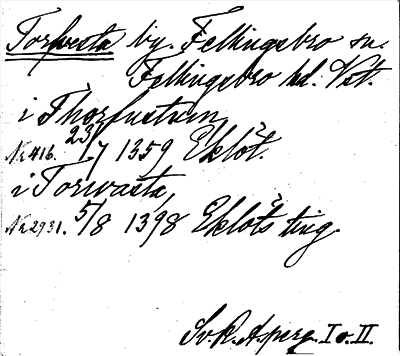 Torfvesta by. Fellingsbro sn.
Fellingsbro hd. Vstl.
i Thorfustum,
No 416. 23/7 1359 Eklöt.
i Torwasta,
No 2931. 5/8 1398 Eklöts ting.
Sv. R. Asperg. I o. II.